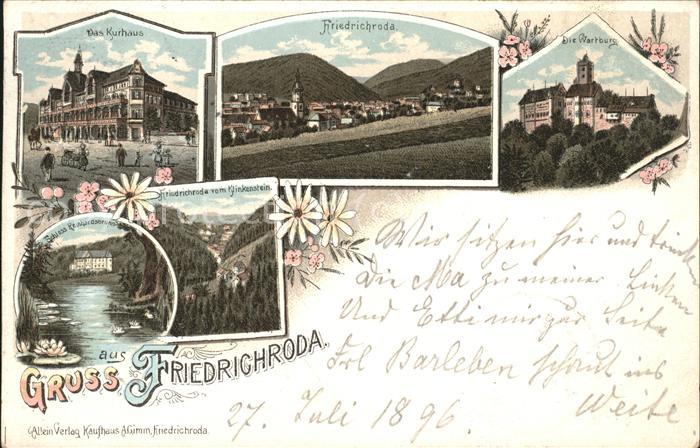 Das Kurhaus
Friedrichroda.
Die Wartburg.
Friedrichroda vom Klinkenstein.
Schloss Reinhardsbrunn
Wir sitzen hier und
Die Ma zu meiner Linken
Und Etti mir zur Seite
Frl Barleben schaut ins
Weite
27. Juli 1896.
GRUSS aus FRIEDRICHRODA.
Allein Verlag Kaufhaus A. Gimm, Friedrichroda.